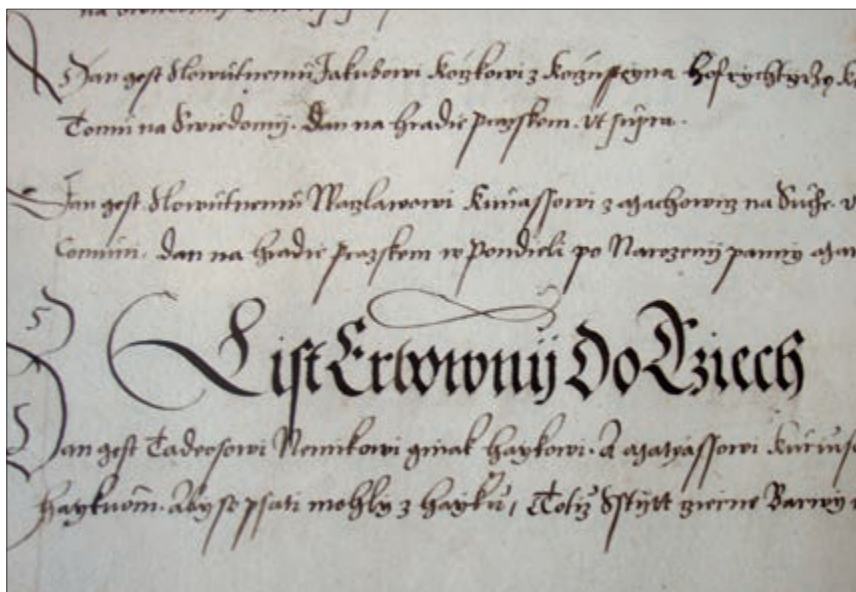 Dan gest Slowutnemu Jakubowi Kozkowi z Kozusseyna hofrychtyrzy
Tomu na Swiedomij. Dan na hradie prazskem. Vt supra.
Dan gest Slowutnemu Waczlawowi Kuassowi z Machowicz na Suche.
Comuni. Dan na hradie prazskem w Pondieli po Narozenij panny
List Erbownij Do Cziech
Dan gest Tadeosowi Nemikowi ginak haykowi. A Matyassowi
haykuom. Aby se psati mohly z Hayku, Totiz Sstijtt